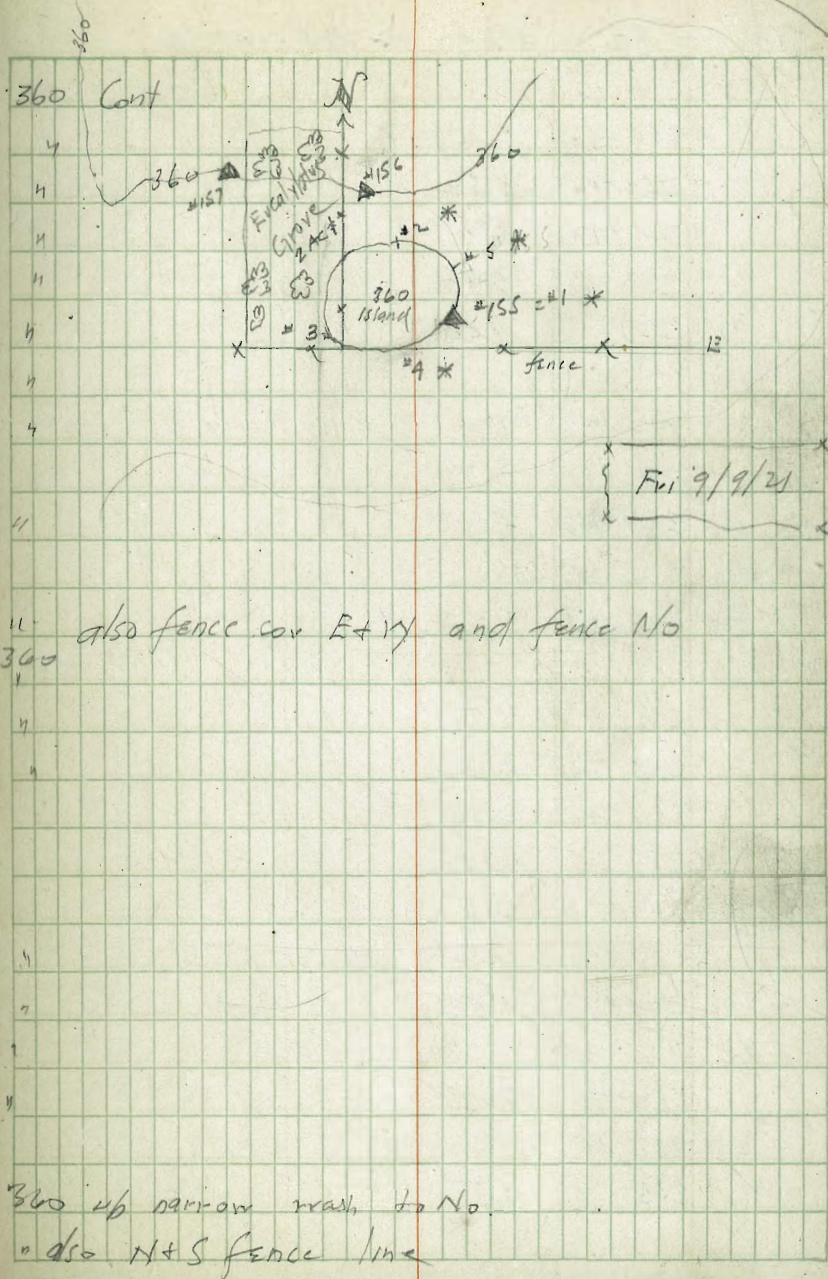 360
360 Cont
N
"
"
360
360
#157
#156
Eucalyptus
Grove
2 Ac±
#2 *
"
#5 *
"
360
Island
#155 = #1 *
"
#3
fence
E
#4 *
"
"
Fri 9/9/21
"
" also fence cor E+W and fence No
360
"
"
"
"
"
"
"
360 up narrow wash to No.
" also N+S fence line